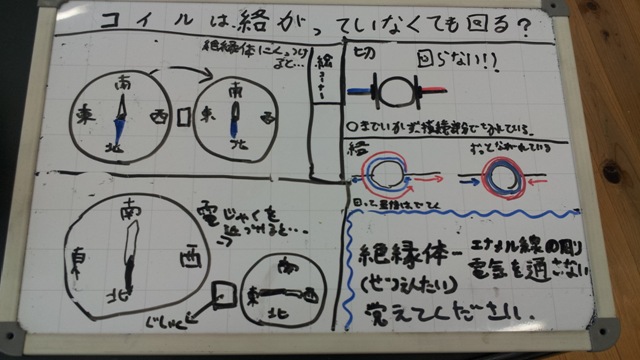 コイルは、絡がっていなくても回る?
絶縁体にくっつけ
ると…
南
東 西
北
南
東 西
北
切
回らない!!
○までいかず、接続部分で
絡
ずっとながれている
南
東 西
北
電じしゃくを
近づけると…
じしゃく
南
東 西
北
絶縁体ーエナメル線の周り
(ぜつえんたい) 電気を通さない
覚えてください。